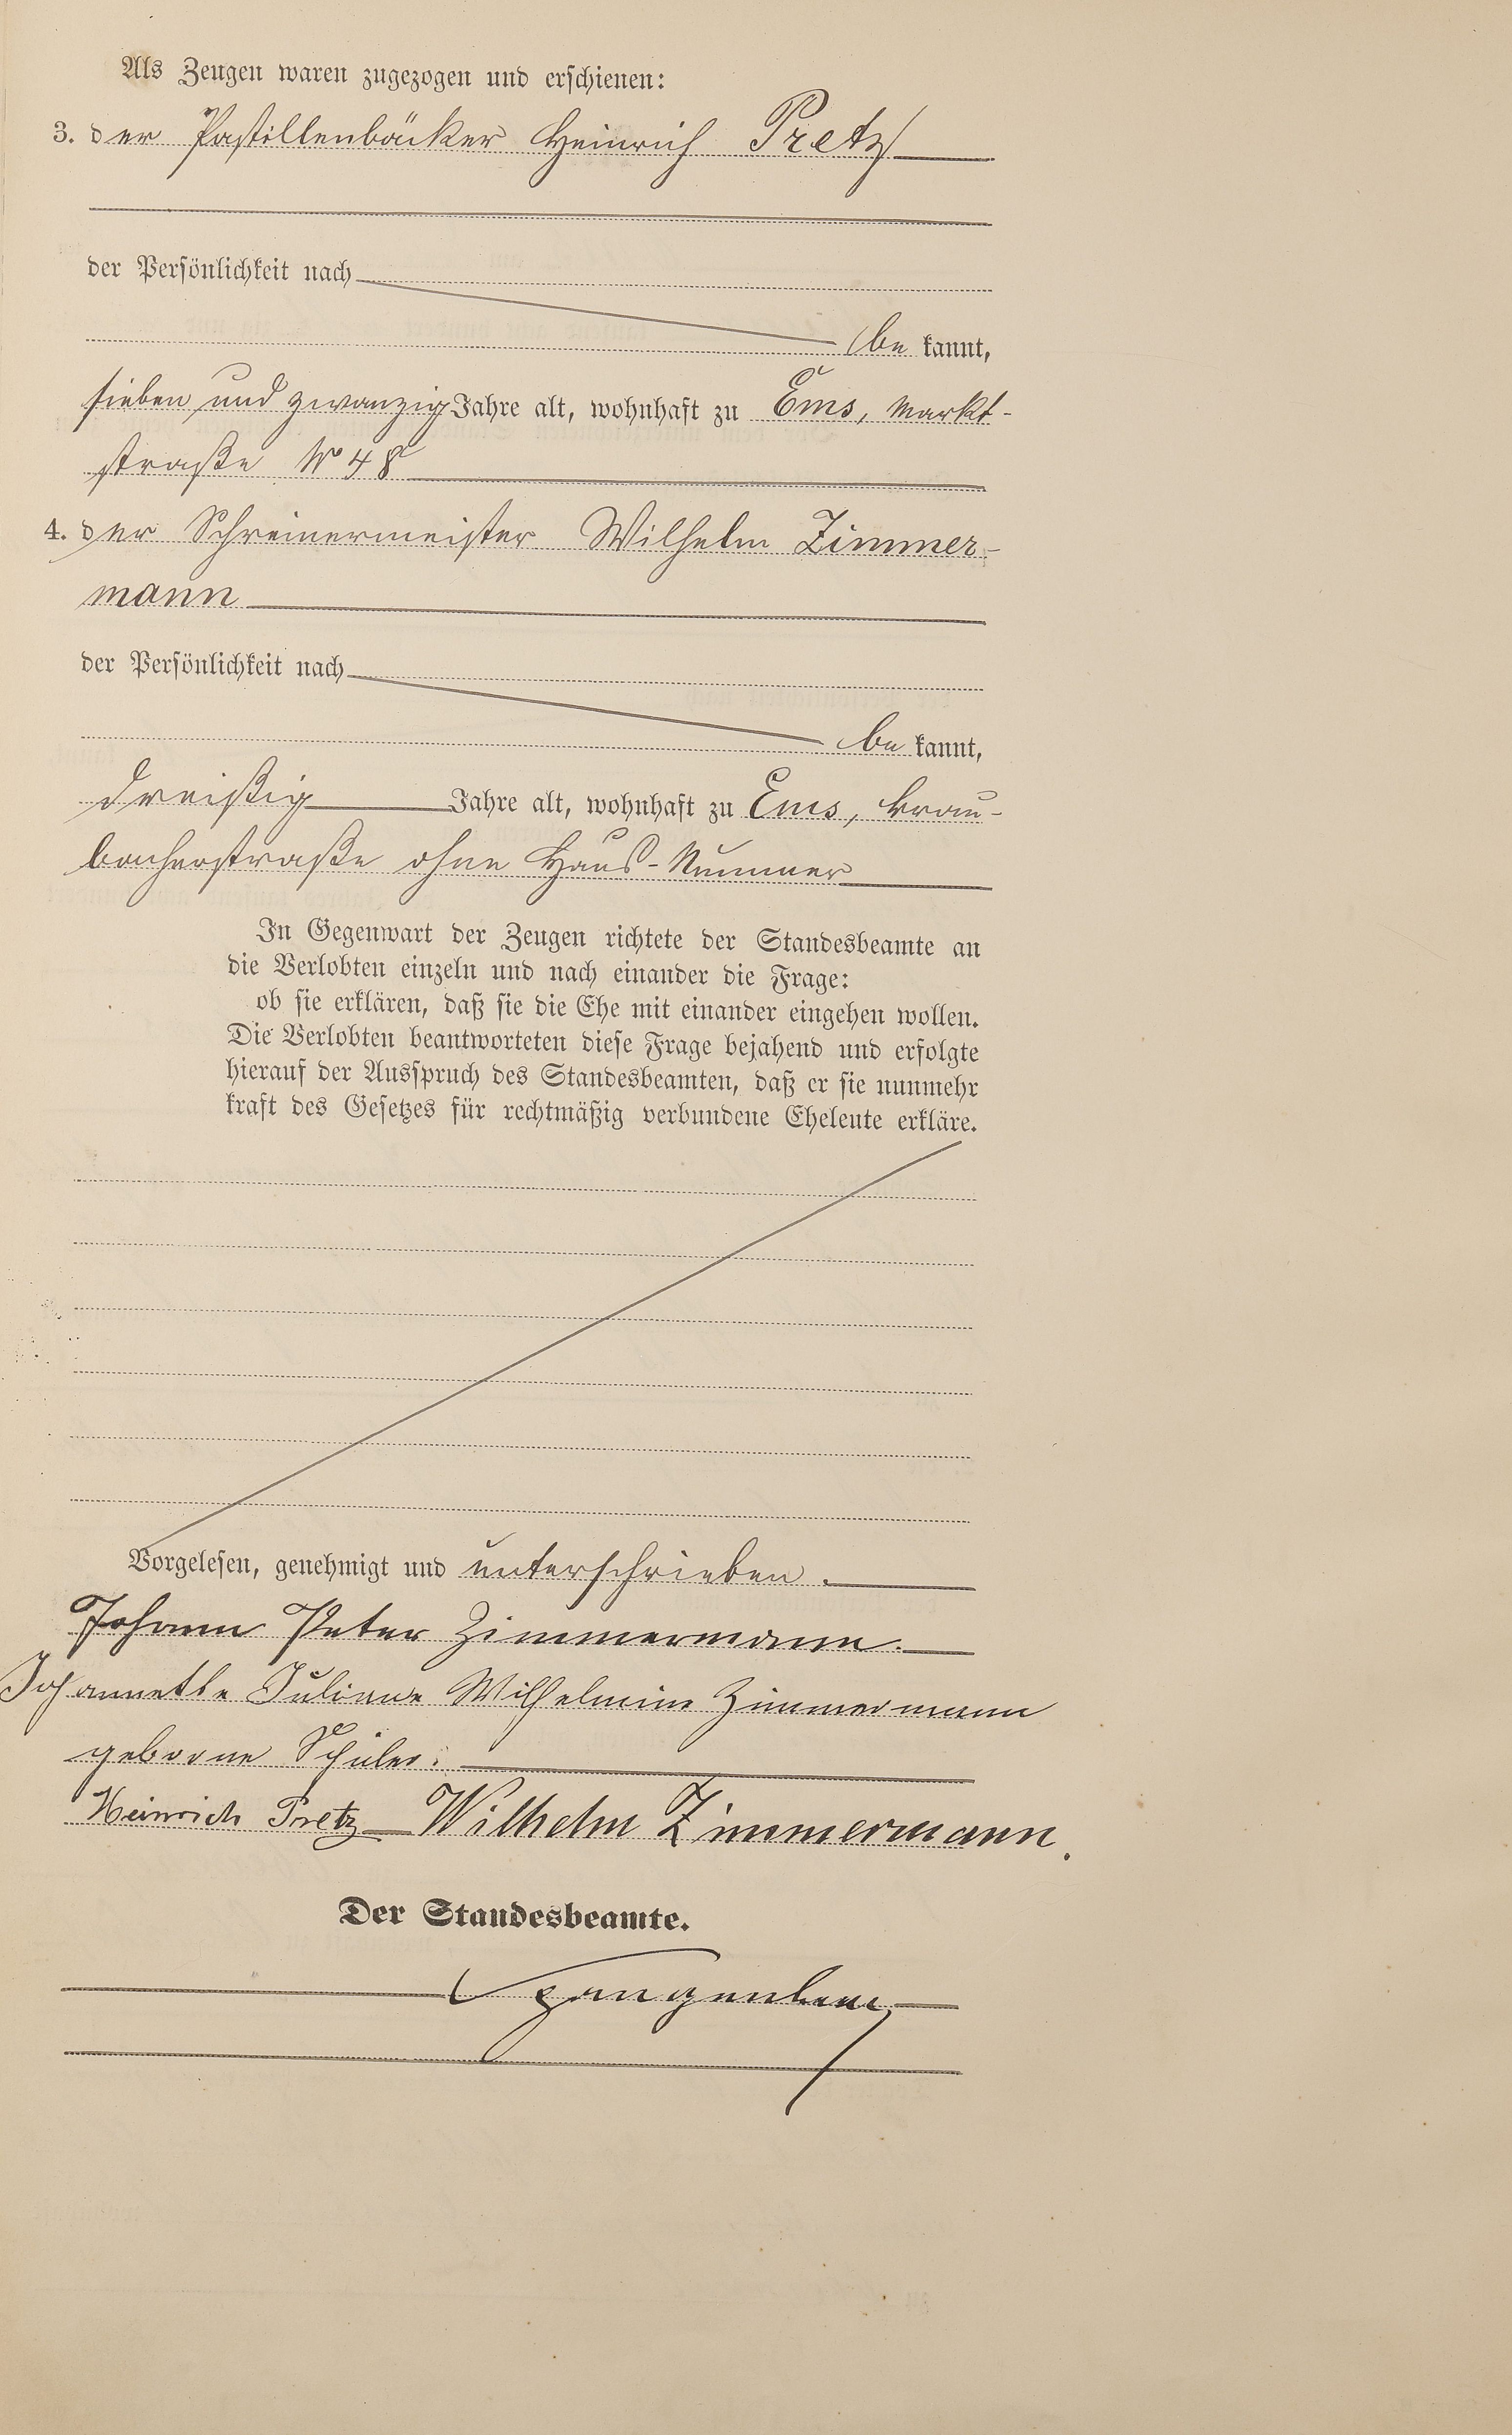 Als Zeugen waren zugezogen und erschienen:
3. der Pastillenbäcker Heinrich Pretz
der Persönlichkeit nach
bekannt,
sieben und zwanzig Jahre alt, wohnhaft zu Ems, Markt-
straße No 48
4. der Schreinermeister Wilhelm Zimmer-
mann
der Persönlichkeit nach
bekannt,
dreißig Jahre alt, wohnhaft zu Ems, Brau-
bacherstraße ohne Haus-Nummer
In Gegenwart der Zeugen richtete der Standesbeamte an
die Verlobten einzeln und nach einander die Frage:
ob sie erklären, daß sie die Ehe mit einander eingehen wollen.
Die Verlobten beantworteten diese Frage bejahend und erfolgte
hierauf der Ausspruch des Standesbeamten, daß er sie nunmehr
kraft des Gesetzes für rechtmäßig verbundene Eheleute erkläre.
Vorgelesen, genehmigt und unterschrieben.
Johann Peter Zimmermann.
Johannette Juliane Wilhelmine Zimmermann
geborne Schüler.
Heinrich Pretz Wilhelm Zimmermann.
Der Standesbeamte.